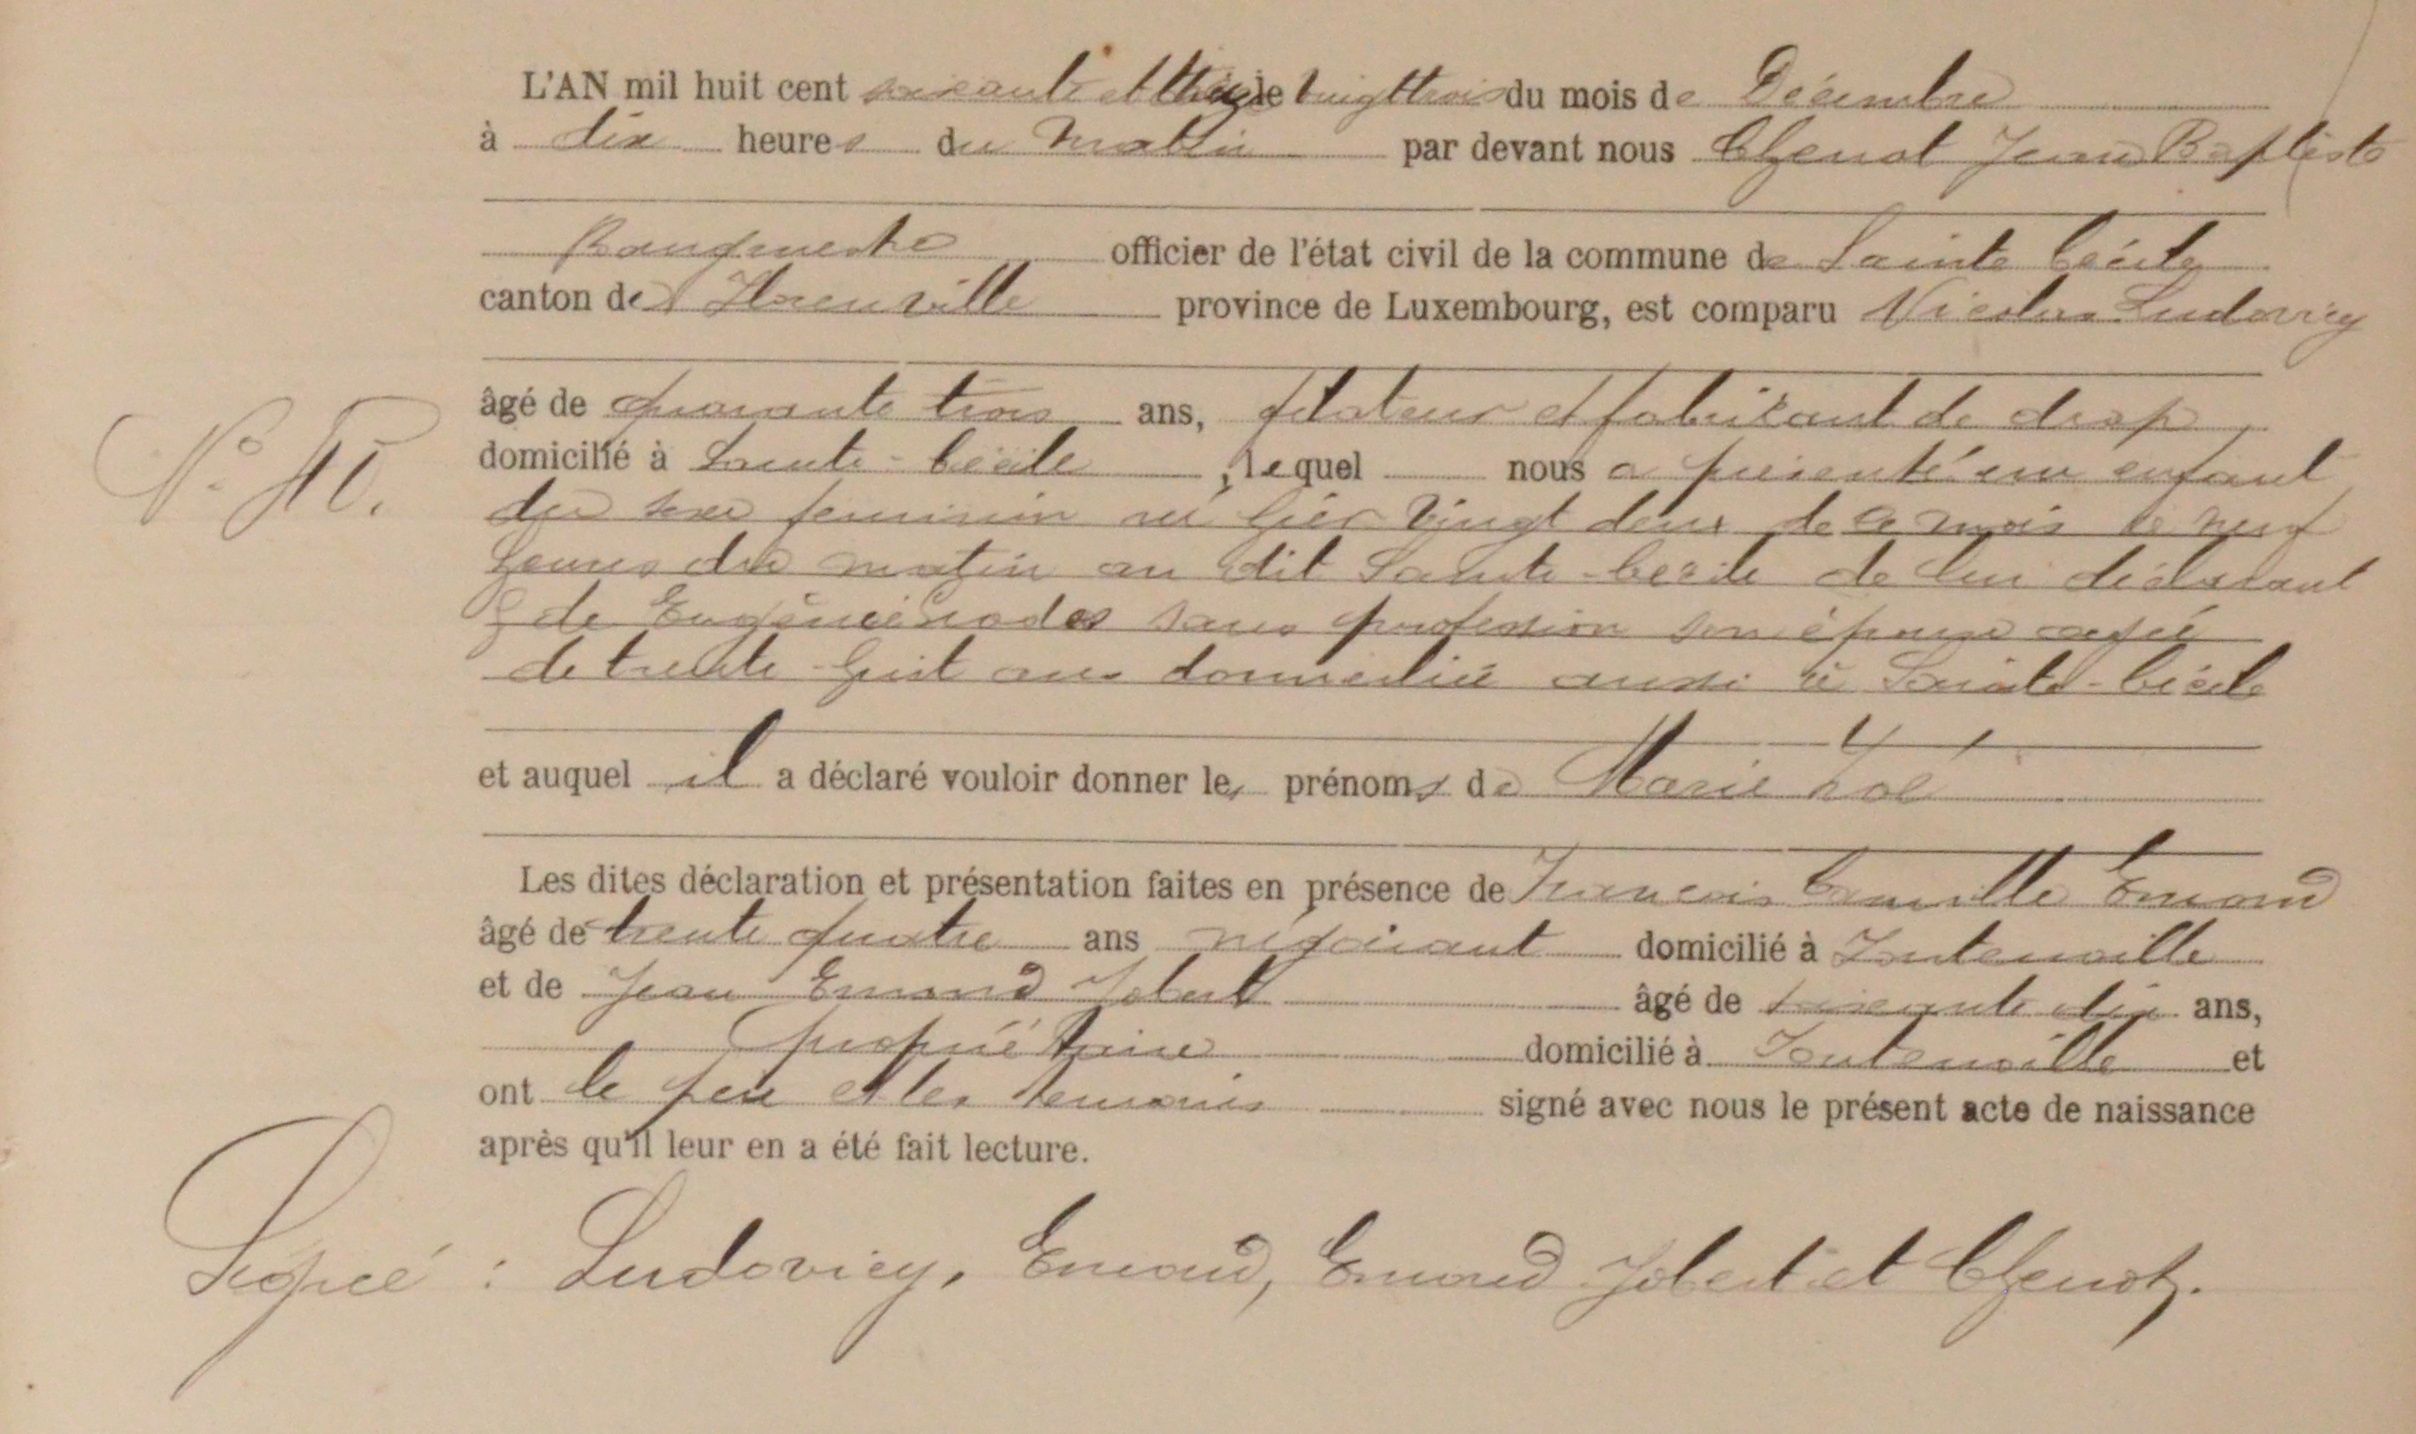 L'AN mil huit cent soixante et le vingt trois du mois de Décembre
à dix heures du matin par devant nous Chenot Jean Baptiste
Bourgmestre officier de l'état civil de la commune de Sainte Cécile
canton de Florenville province de Luxembourg, est comparu Nicolas Ludovicy
âgé de quarante trois ans, filateur et fabricant de drap
domicilié à Sainte-Cécile, lequel nous a présenté un enfant
N°
du sexe feminin né hier vingt deux de ce mois à neuf
heures du matin au dit Sainte-Cécile de lui déclarant
& de Eugénie sans profession son épouse agée
de trente-huit ans domiciliée aussi à Sainte-Cécile
et auquel il a déclaré vouloir donner les prénoms de Marie Zoé
Les dites déclaration et présentation faites en présence de François Camille Emond
âgé de trente quatre ans négociant domicilié à Fontenoille
et de Jean Emond Jobert âgé de soixante dix ans,
propriétaire domicilié à Fontenoille et
ont le pere et les temoins signé avec nous le présent acte de naissance
après qu'il leur en a été fait lecture.
Signé : Ludovicy, Emond, Emond Jobert et Chenot.